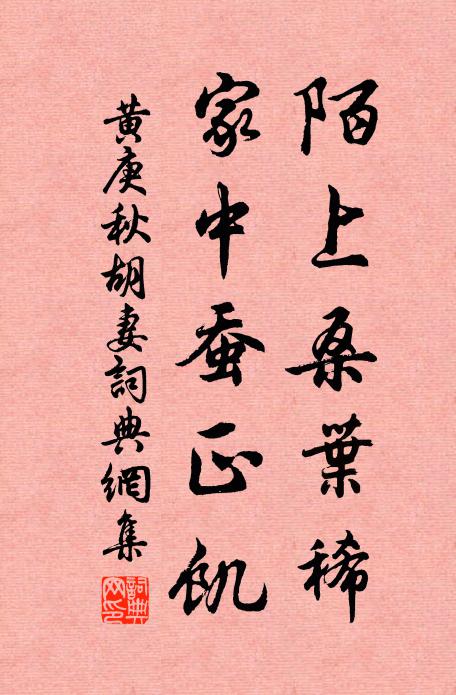 陌上桑葉稀
家中蚕正飢
黄庚秋胡妻詞典網集
詞典網印